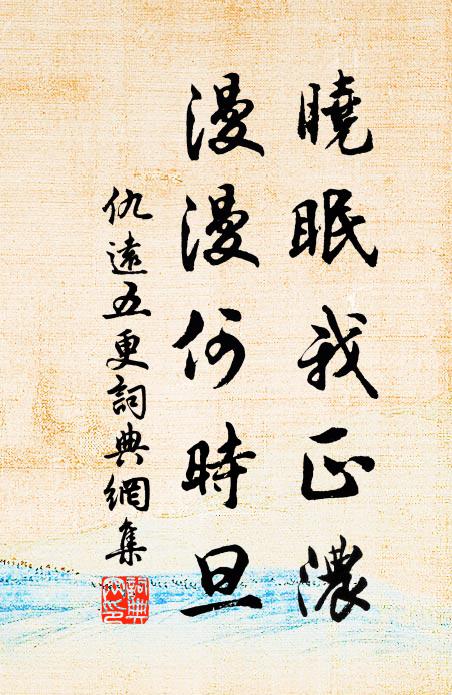 曉眠我正濃
漫漫何時旦
仇遠五更詞典網集